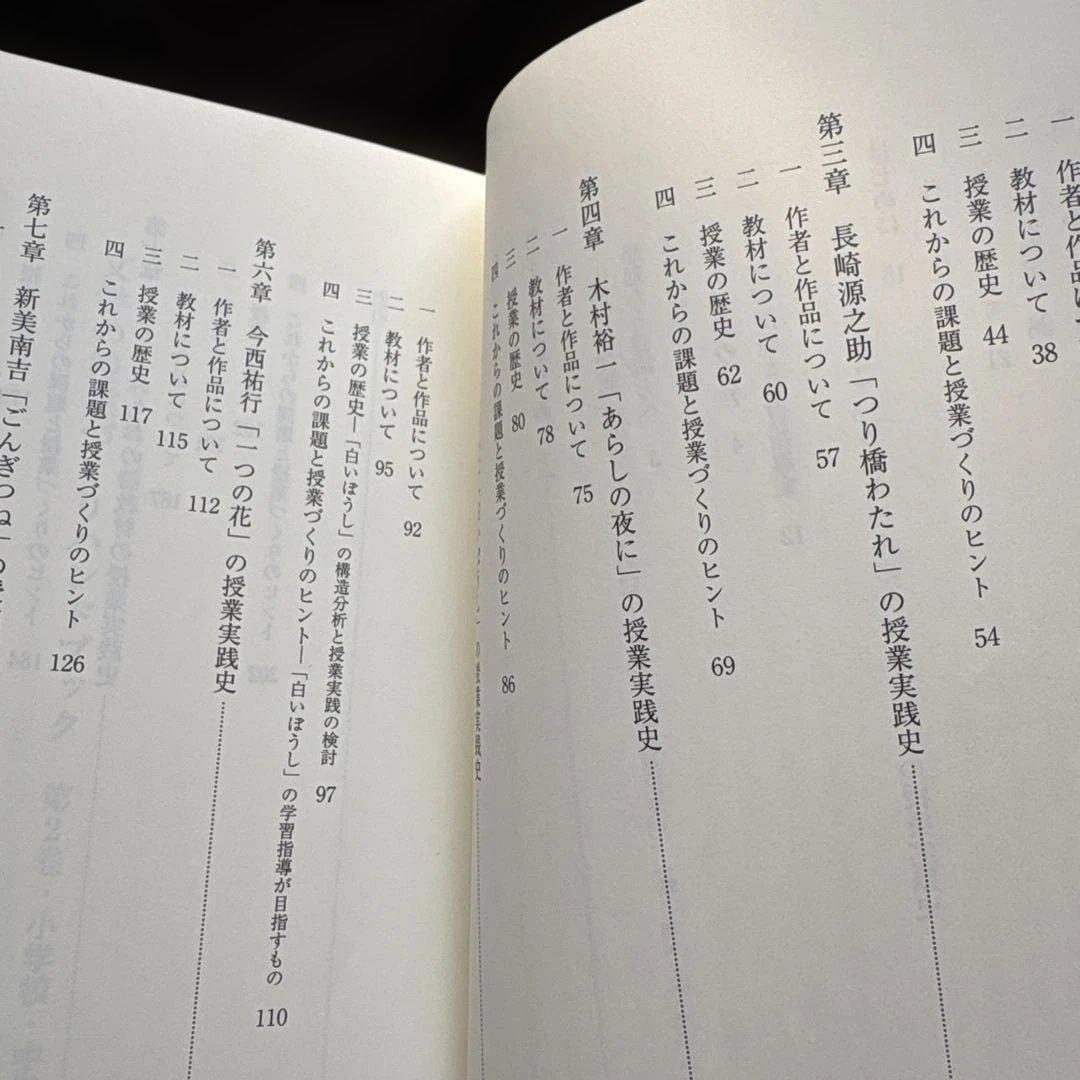 一 作者と作品に
二 教材について 38
三 授業の歴史 44
四 これからの課題と授業づくりのヒント 54
第三章 長崎源之助「つり橋わたれ」の授業実践史
一 作者と作品について 57
二 教材について 60
三 授業の歴史 62
四 これからの課題と授業づくりのヒント 69
第四章 木村裕一「あらしの夜に」の授業実践史
一 作者と作品について 75
二 教材について 78
三 授業の歴史 80
四 これからの課題と授業づくりのヒント 86
の授業実践史
一 作者と作品について 92
二 教材について 95
三 授業の歴史―「白いぼうし」の構造分析と授業実践の検討 97
四 これからの課題と授業づくりのヒント―「白いぼうし」の学習指導が目指すもの 110
第六章 今西祐行「一つの花」の授業実践史
一 作者と作品について 112
二 教材について 115
三 授業の歴史 117
四 これからの課題と授業づくりのヒント 126
第七章 新美南吉「ごんぎつね」の